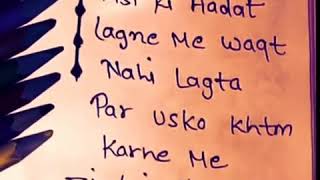 Ki Aadat
Lagne Me Waqt
Nahi Lagta
Par Usko Khtm
Karne Me